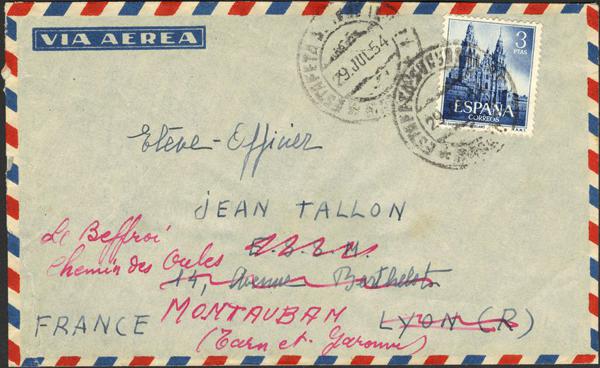 VIA AEREA
29 JUL 54
3
PTAS
ESPAÑA
CORREOS
Elève-Officier
JEAN TALLON
E.S.S.M.
Le Beffroi
Chemin des Oules
14, Avenue Berthelot
MONTAUBAN
LYON (R)
FRANCE
(Tarn et Garonne)